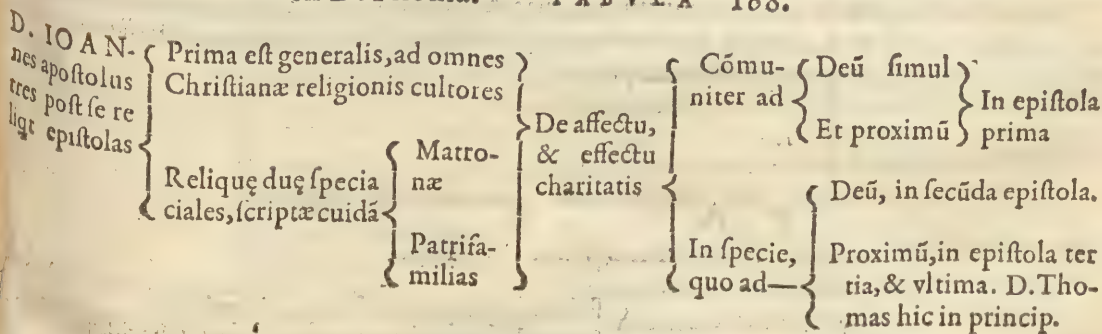 TABVLA 166.
D. IOAN-
nes apoſtolus
tres poſt ſe re
liqt epiſtolas
Prima eſt generalis, ad omnes
Chriſtianæ religionis cultores
Reliquę duę ſpecia
ciales, ſcriptæ cuidã
Matro-
næ
Patriſa-
milias
De affectu,
& effectu
charitatis
Cómu-
niter ad
Deũ ſimul
Et proximũ
In epiſtola
prima
In ſpecie,
quo ad
Deũ, in ſecũda epiſtola.
Proximũ, in epiſtola ter
tia, & vltima. D. Tho-
mas hic in princip.